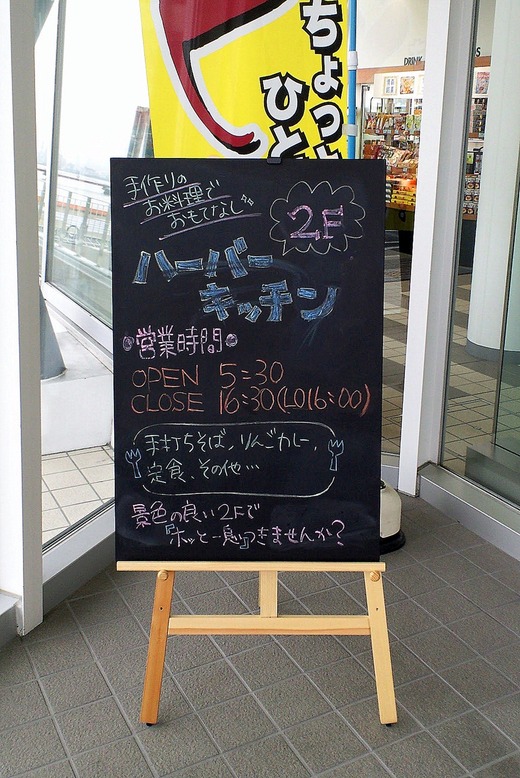 ちょっと
ひと
DRINK
手作りの
お料理で
おもてなし
2F
ハーバー
キッチン
営業時間
OPEN 5:30
CLOSE 16:30(LO16:00)
手打ちそば、りんごカレー、
定食、その他…
景色の良い2Fで
『ホッと一息』つきませんか?